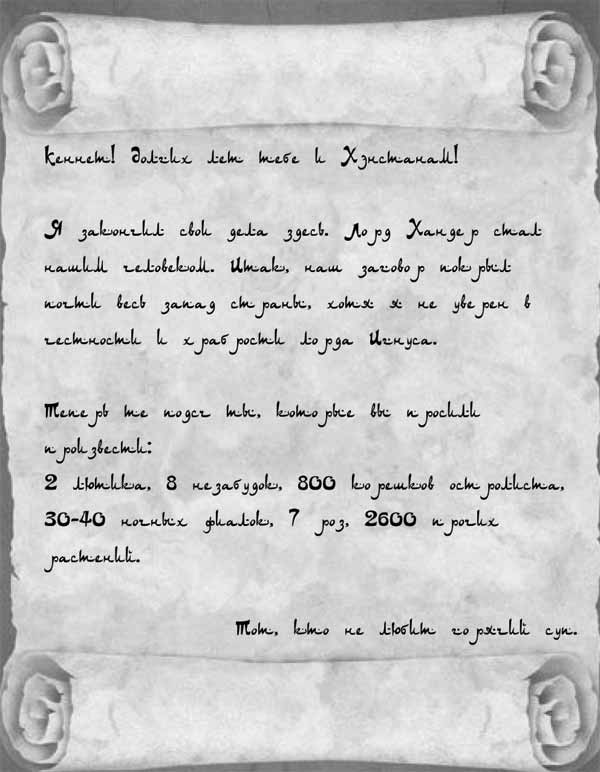 Кеннет! Долгих лет тебе и Хэнстанам!
Я закончил свои дела здесь. Лорд Хандер стал
нашим человеком. Итак, наш заговор покрыл
почти весь запад страны, хотя я не уверен в
честности и храбрости лорда Игнуса.
Теперь те подсчты, которые вы просили
произвести:
2 лютика, 8 незабудок, 800 корешков остролиста,
30-40 ночных фиалок, 7 роз, 2600 прочих
растений.
Тот, кто не любит горячий суп.